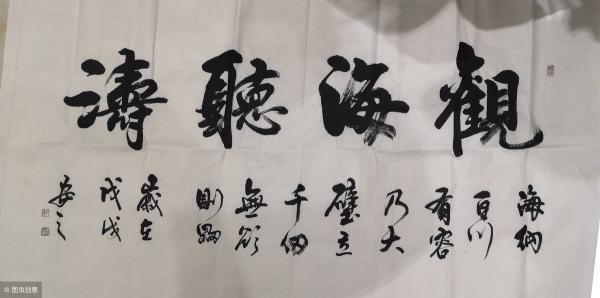 觀海聽濤
海納
百川
有容
乃大
壁立
千仞
無欲
則剛
歲在
戊戌
安之
图虫创意